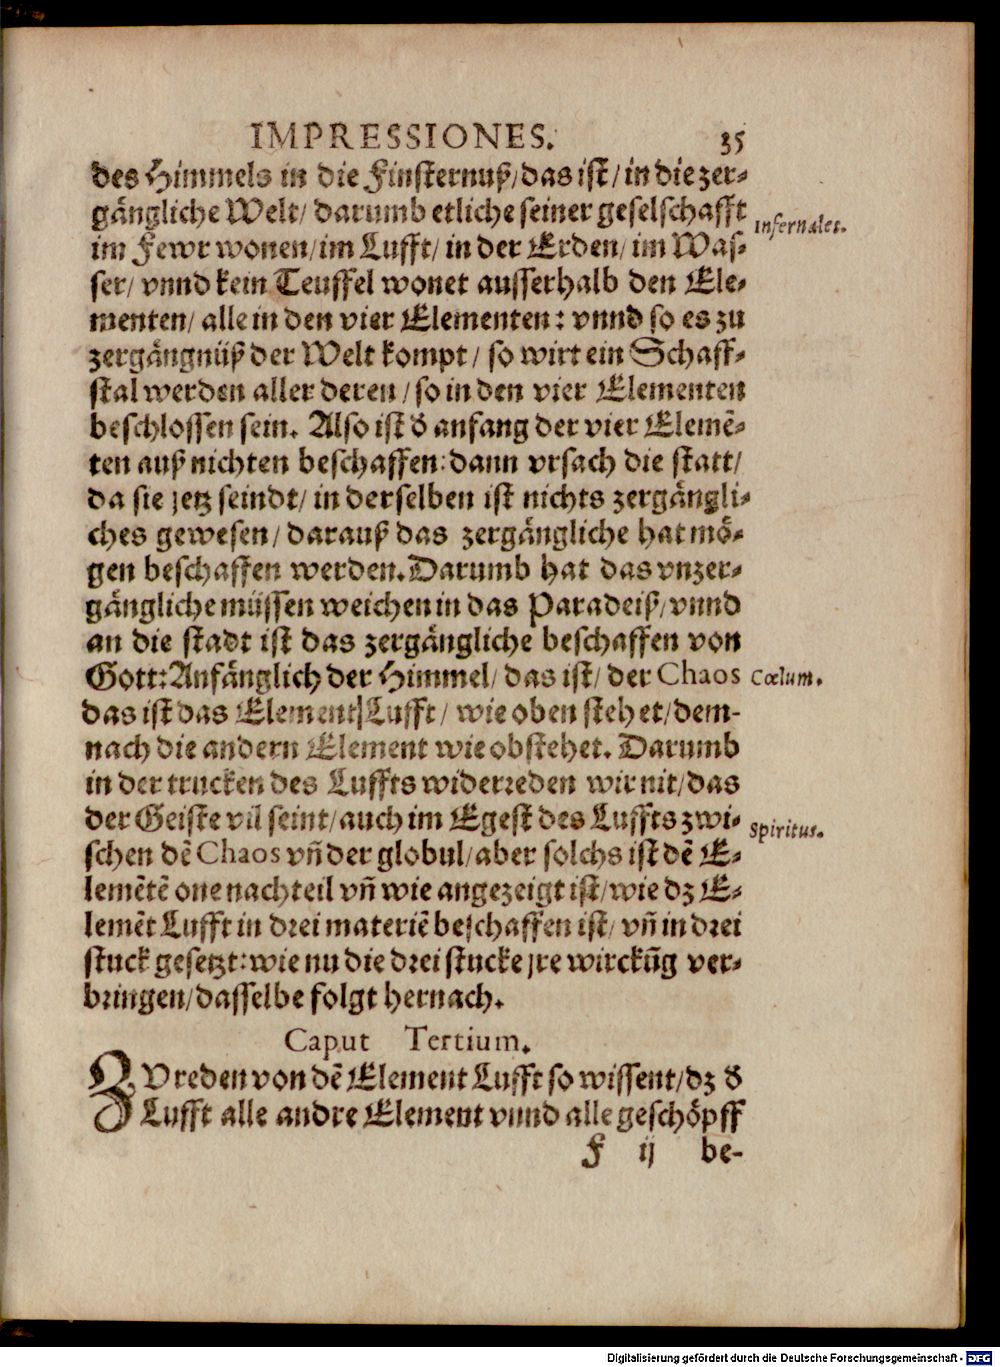 IMPRESSIONES. 35
des Himmels in die Finsternuß/das ist/in die zer-
gängliche Welt/darumb etliche seiner geselschafft
Infernales.
im Fewr wonen/im Lufft/in der Erden/im Was-
ser/vnnd kein Teuffel wonet ausserhalb den Ele-
menten/alle in den vier Elementen: vnnd so es zu
zergängnüß der Welt kompt/so wirt ein Schaff-
stal werden aller deren/so in den vier Elementen
beschlossen sein. Also ist d̕ anfang der vier Elemē-
ten auß nichten beschaffen: dann vrsach die statt/
da sie jetz seindt/in derselben ist nichts zergängli-
ches gewesen/darauß das zergängliche hat mö-
gen beschaffen werden. Darumb hat das vnzer-
gängliche müssen weichen in das Paradeiß/vnnd
an die stadt ist das zergängliche beschaffen von
Gott: Anfänglich der Himmel/das ist/der Chaos
Cœlum.
das ist das Element Lufft/wie oben stehet/dem-
nach die andern Element wie obstehet. Darumb
in der trucken des Luffts widerreden wir nit/das
der Geiste vil seint/auch im Egest des Luffts zwi-
Spiritus.
schen dē Chaos vñ der globul/aber solchs ist dē E-
lemētē one nachteil vñ wie angezeigt ist/wie dz E-
lemēt Lufft in drei materiē beschaffen ist/vñ in drei
stuck gesetzt: wie nu die drei stucke jre wirckūg ver-
bringen/dasselbe folgt hernach.
Caput Tertium.
ZV reden von dē Element Lufft so wissent/dz d̕
Lufft alle andre Element vnnd alle geschöpff
F ij be-
Digitalisierung gefördert durch die Deutsche Forschungsgemeinschaft - DFG